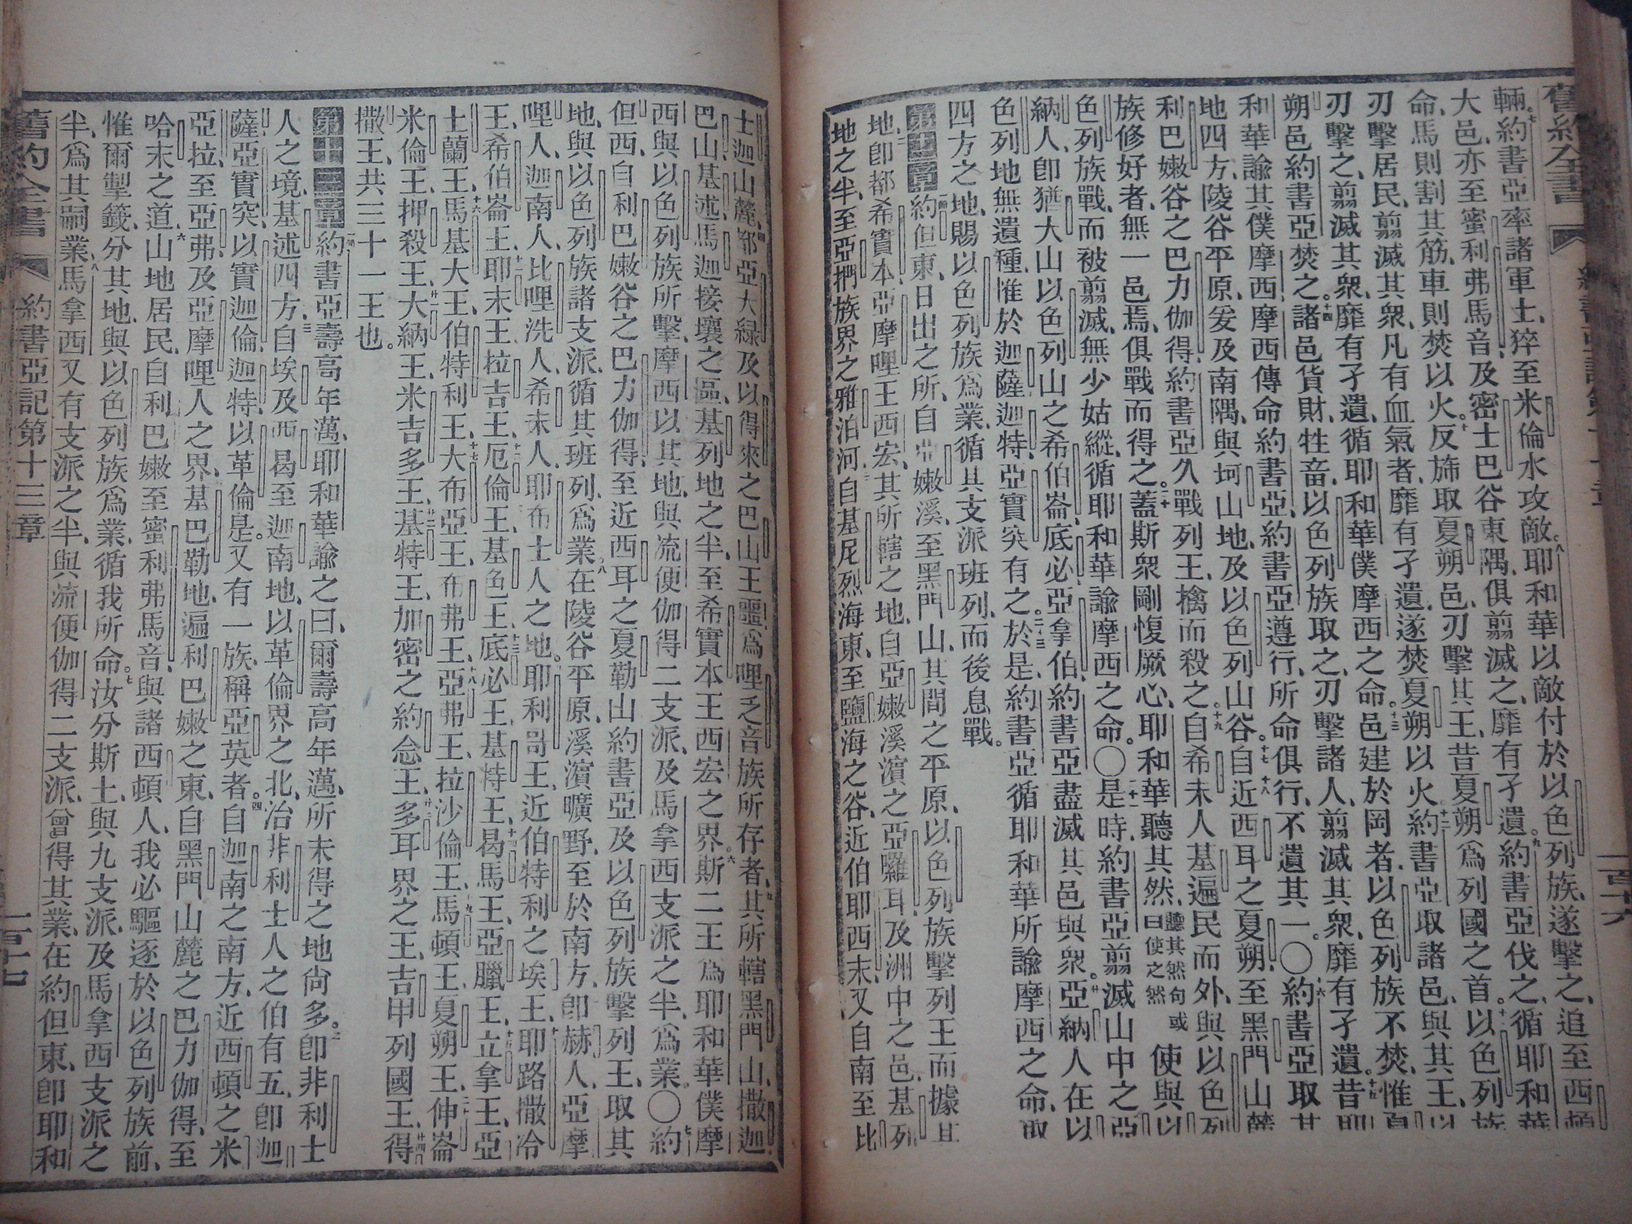 舊約全書
輛七約書亞率諸軍士、猝至米倫水攻敵、八耶和華以敵付於以色列族、遂擊之、追至西頓
大邑、亦至蜜利弗馬音、及密士巴谷東隅、俱翦滅之、靡有孑遺。九約書亞伐之、循耶和華
命、馬則割其筋、車則焚以火。十反斾取夏朔邑、刃擊其王、昔夏朔爲列國之首。十一以色列族
刃擊居民、翦滅其衆、凡有血氣者、靡有孑遺、遂焚夏朔以火。十二約書亞取諸邑、與其王、以
刃擊之、翦滅其衆、靡有孑遺、循耶和華僕摩西之命。十三邑建於岡者、以色列族不焚、惟夏
朔邑約書亞焚之。十四諸邑貨財、牲畜、以色列族取之、刃擊諸人、翦滅其衆、靡有孑遺。十五昔耶
和華諭其僕摩西、摩西傳命約書亞、約書亞遵行、所命俱行、不遺其一。〇十六約書亞取其
地四方、陵谷平原、及南隅、與坷山地、及以色列山谷。十七自近西耳之夏朔、至黑門山麓
利巴嫩谷之巴力伽得、約書亞久戰列王、擒而殺之。十九自希未人基遍民而外、與以色列
族修好者、無一邑焉、俱戰而得之。二十蓋斯衆剛愎厥心、耶和華聽其然 聽其然句或曰使之然 使與以
色列族戰、而被翦滅、無少姑縱、循耶和華諭摩西之命。〇二十一是時約書亞翦滅山中之亞
納人、卽猶大山以色列山之希伯崙、底必、亞拿伯、約書亞盡滅其邑與衆。二十二亞納人在以
色列地無遺種、惟於迦薩、迦特、亞實突有之。二十三於是約書亞循耶和華所諭摩西之命、取
四方之地、賜以色列族爲業、循其支派班列、而後息戰。
第十二章 約但東、日出之所、自亞嫩溪、至黑門山、其間之平原、以色列族擊列王而據其
地、卽都希實本亞摩哩王西宏、其所轄之地、自亞嫩溪濱之亞囉耳、及洲中之邑、基列
地之半、至亞捫族界之雅泊河、自基尼烈海東、至鹽海之谷、近伯耶西末、又自南至比
士迦山麓。四鄂亞大綠及以得來之巴山王噩、爲哩乏音族所存者、五其所轄、黑門山、撒迦
巴山、基述馬迦接壤之區、基列地之半、至希實本王西宏之界。六斯二王爲耶和華僕摩
西與以色列族所擊、摩西以其地、與流便伽得二支派、及馬拿西支派之半、爲業。〇七約
但西、自利巴嫩谷之巴力伽得、至近西耳之夏勒山、約書亞及以色列族擊列王、取其
地、與以色列族諸支派、循其班列、爲業。八在陵谷平原、溪濱曠野、至於南方、卽赫人、亞摩
哩人、迦南人、比哩洗人、希未人、耶布士人之地。九耶利哥王、近伯特利之埃王、耶路撒冷
王、希伯崙王、耶末王、拉吉王、厄倫王、基色王、底必王、基特王、曷馬王、亞臘王、立拿王、亞
土蘭王、馬基大王、伯特利王、大布亞王、希弗王、亞弗王、拉沙倫王、馬頓王、夏朔王、伸崙
米倫王、押殺王、大納王、米吉多王、基特王、加密之約念王、多耳界之王、吉甲列國王、得
撒王、共三十一王也。
第十三章 約書亞壽高年邁、耶和華諭之曰、爾壽高年邁、所未得之地尙多。二卽非利士
人之境、基述四方、三自埃及西曷至迦南地、以革倫界之北、治非利士人之伯有五、卽迦
薩、亞實突、以實迦倫、迦特、以革倫是。又有一族、稱亞英者。四自迦南之南方、近西頓之米
亞拉、至亞弗、及亞摩哩人之界、五基巴勒地、遍利巴嫩之東、自黑門山麓之巴力伽得、至
哈末之道、六山地居民、自利巴嫩至蜜利弗馬音、與諸西頓人、我必驅逐於以色列族前、
惟爾掣籤、分其地與以色列族爲業、循我所命。七汝分斯土、與九支派、及馬拿西支派之
半、爲其嗣業。八馬拿西又有支派之半、與流便、伽得二支派、曾得其業、在約但東、卽耶和
舊約全書 約書亞記第十三章 一百十七